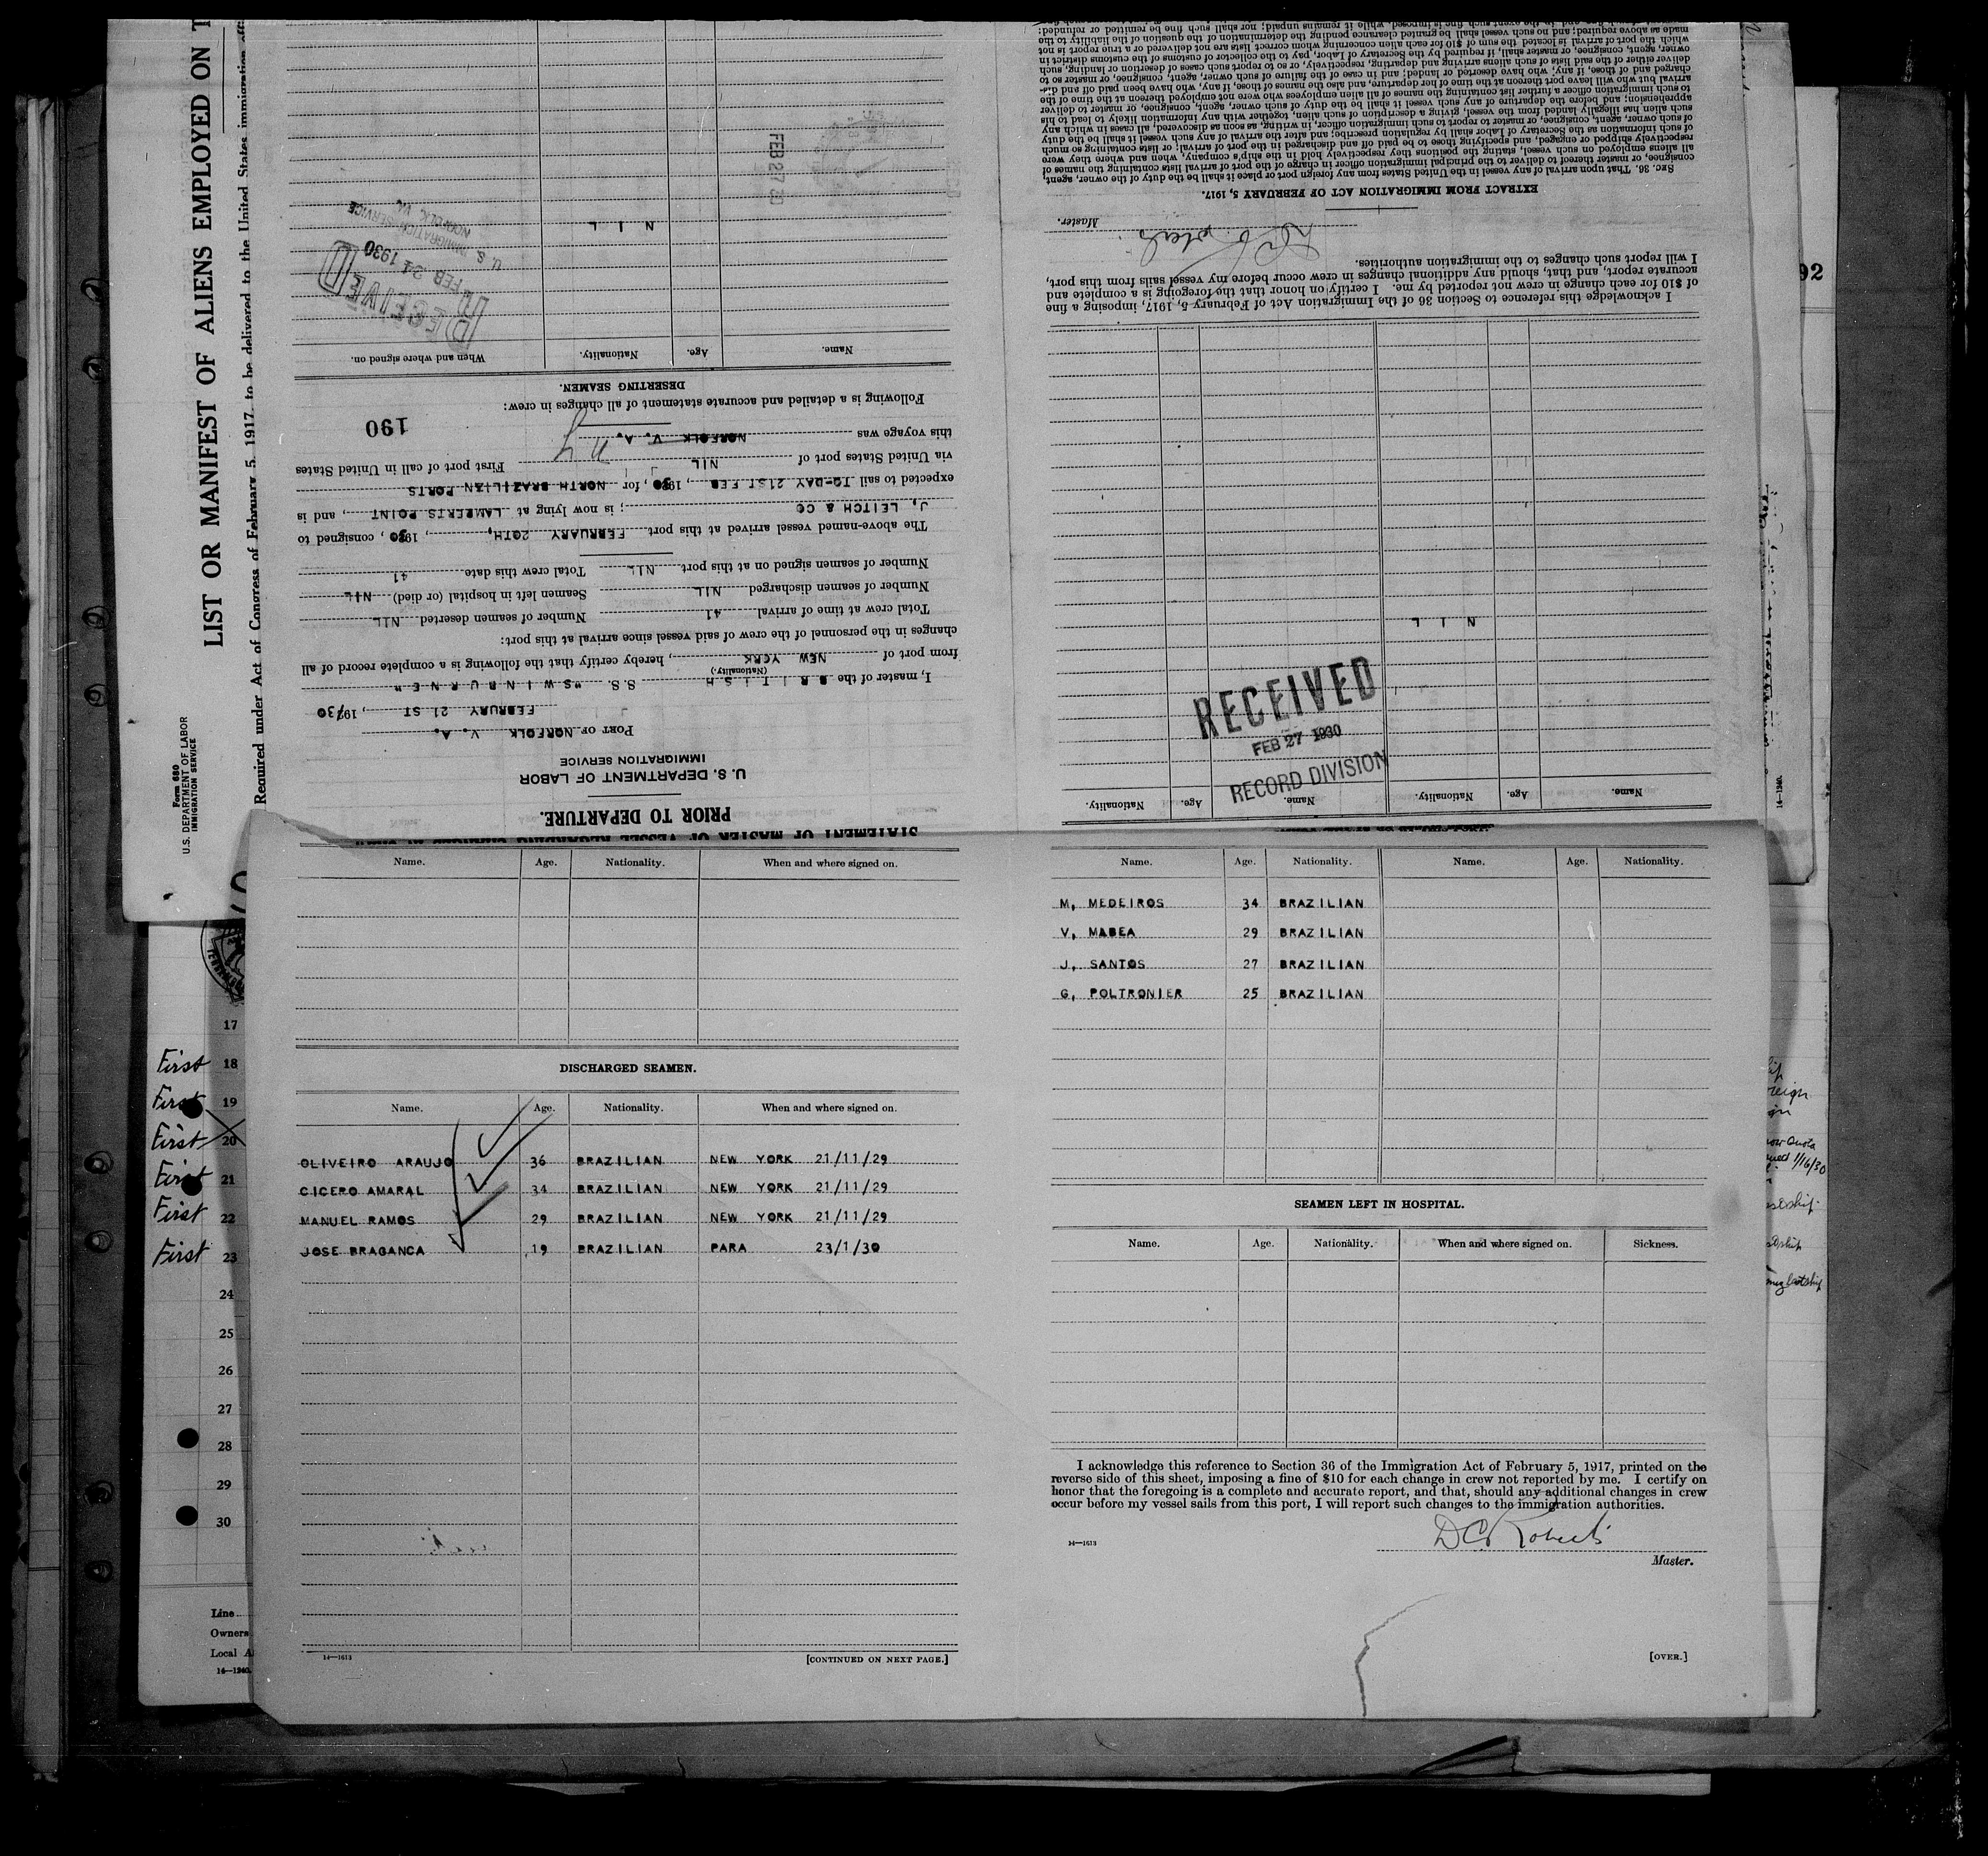 LIST OR MANIFEST OF ALIENS EMPLOYED ON T
Required under Act of Congress of February 5, 1917, to be delivered to the United States immigration off
Form 680
U.S. DEPARTMENT OF LABOR
IMMIGRATION SERVICE
STATEMENT OF MASTER OF VESSEL REGARDING CHANGES IN CREW
PRIOR TO DEPARTURE.
U. S. DEPARTMENT OF LABOR
IMMIGRATION SERVICE
PORT OF NORFOLK V. A.
FEBRURY 21 ST, 1930
I, master of the BRITISH S.S. "SWINBURNE"
(Nationality.)
from port of NEW YORK, hereby certify that the following is a complete record of all
changes in the personnel of the crew of said vessel since arrival at this port:
Total crew at time of arrival 41 Number of seamen deserted NIL
Number of seamen discharged NIL Seamen left in hospital (or died) NIL
Number of seamen signed on at this port NIL Total crew this date 41
The above-named vessel arrived at this port FEBRUARY 20TH, 1930, consigned to
J, LEITCH & CO; is now lying at LAMBERTS POINT, and is
expected to sail TO-DAY 21ST FEB, 1930, for NORTH BRAZILIAN PORTS
via United States port of NIL First port of call in United States
this voyage was NORFOLK V. A.
190
Following is a detailed and accurate statement of all changes in crew:
DESERTING SEAMEN.
Name. Age. Nationality. When and where signed on.
RECEIVED
FEB 24 1930
U. S. IMMIGRATION SERVICE
NORFOLK, VA.
N I L
FEB 27 30
Name. Age. Nationality. Name. Age. Nationality.
RECEIVED
FEB 27 1930
RECORD DIVISION
N I L
I acknowledge this reference to Section 36 of the Immigration Act of February 5, 1917, imposing a fine
of $10 for each change in crew not reported by me. I certify on honor that the foregoing is a complete and
accurate report, and that, should any additional changes in crew occur before my vessel sails from this port,
I will report such changes to the immigration authorities.
Master.
EXTRACT FROM IMMIGRATION ACT OF FEBRUARY 5, 1917.
SEC. 36. That upon arrival of any vessel in the United States from any foreign port or place it shall be the duty of the owner, agent,
consignee, or master thereof to deliver to the principal immigration officer in charge of the port of arrival lists containing the names of
all aliens employed on such vessel, stating the positions they respectively hold in the ship's company, when and where they were
respectively shipped or engaged, and specifying those to be paid off and discharged in the port of arrival; or lists containing so much
of such information as the Secretary of Labor shall by regulation prescribe; and after the arrival of any such vessel it shall be the duty
of such owner, agent, consignee, or master to report to such immigration officer, in writing, as soon as discovered, all cases in which any
such alien has illegally landed from the vessel, giving a description of such alien, together with any information likely to lead to his
apprehension; and before the departure of any such vessel it shall be the duty of such owner, agent, consignee, or master to deliver
to such immigration officer a further list containing the names of all alien employees who were not employed thereon at the time of the
arrival but who will leave port thereon at the time of her departure, and also the names of those, if any, who have been paid off and dis-
charged and of those, if any, who have deserted or landed; and in case of the failure of such owner, agent, consignee, or master so to
deliver either of the said lists of such aliens arriving and departing, respectively, or so to report such cases of desertion or landing, such
owner, agent, consignee, or master shall, if required by the Secretary of Labor, pay to the collector of customs of the customs district in
which the port of arrival is located the sum of $10 for each alien concerning whom correct lists are not delivered or a true report is not
made as above required; and no such vessel shall be granted clearance pending the determination of the question of the liability to the
92
14—1240.
Name. Age. Nationality. When and where signed on.
DISCHARGED SEAMEN.
Name. Age. Nationality. When and where signed on.
OLIVEIRO ARAUJO 36 BRAZILIAN NEW YORK 21/11/29
CICERO AMARAL 34 BRAZILIAN NEW YORK 21/11/29
MANUEL RAMOS 29 BRAZILIAN NEW YORK 21/11/29
JOSE BRAGANCA 19 BRAZILIAN PARA 23/1/30
14—1613
[CONTINUED ON NEXT PAGE.]
Name. Age. Nationality. Name. Age. Nationality.
M, MEDEIROS 34 BRAZILIAN
V, MABEA 29 BRAZILIAN
J, SANTOS 27 BRAZILIAN
G, POLTRONIER 25 BRAZILIAN
SEAMEN LEFT IN HOSPITAL.
Name. Age. Nationality. When and where signed on. Sickness.
I acknowledge this reference to Section 36 of the Immigration Act of February 5, 1917, printed on the
reverse side of this sheet, imposing a fine of $10 for each change in crew not reported by me. I certify on
honor that the foregoing is a complete and accurate report, and that, should any additional changes in crew
occur before my vessel sails from this port, I will report such changes to the immigration authorities.
DC Roberts
14—1613
Master.
[OVER.]
17
First 18
First 19
First 20
First 21
First 22
First 23
24
25
26
27
28
29
30
Line
Owners
Local A
14—1240.
1/16/30